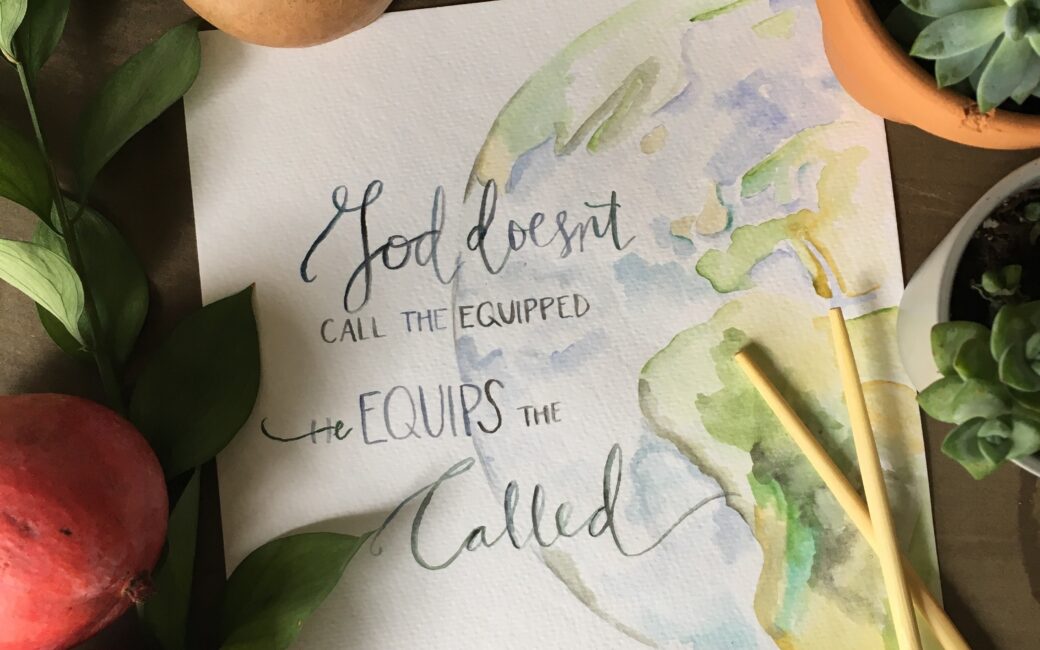 God doesn't
CALL THE EQUIPPED
He EQUIPS THE
Called